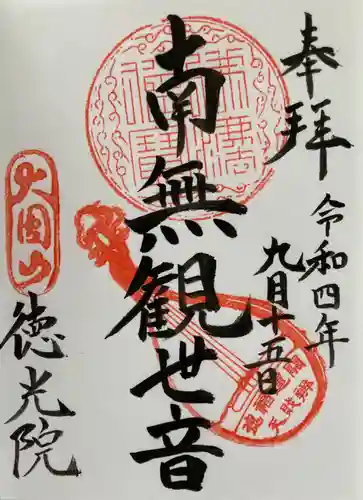 奉拝
令和四年
九月十五日
南無観世音
大圓山
徳光院